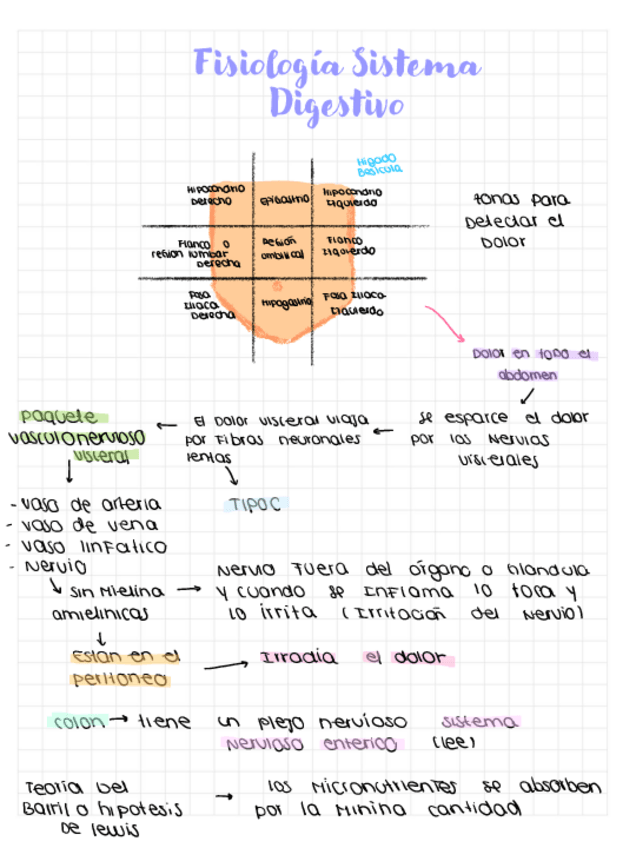 Fisiología Sistema
Digestivo
Higado
Besicula
Hipocondrio
Derecho
Epigastrio
Hipocondrio
Izquierdo
Flanco o
region lumbar
Derecha
Región
umbilical
Flanco
Izquierdo
Fosa
Iliaca
Derecha
Hipogastrio
Fosa Iliaca
Izquierdo
zonas para
Detectar el
Dolor
Dolor en todo el
abdomen
se esparce el dolor
por los Nervios
viscerales
El Dolor visceral viaja
por Fibras neuronales
lentas
TIPO C
paquete
vasculonervioso
visceral
- vaso de arteria
- vaso de vena
- vaso linfatico
- Nervio
sin Mielina
amielinicas
Nervio Fuera del órgano o glandula
y cuando se Inflama lo toca y
lo irrita (Irritación del Nervio)
Están en el
peritoneo
Irradia el dolor
colon → tiene un plejo nervioso sistema
Nervioso enterico (lee)
Teoría Del
Barril o hipotesis
De lewis
→ los Micronutrientes se absorben
por la Minina cantidad